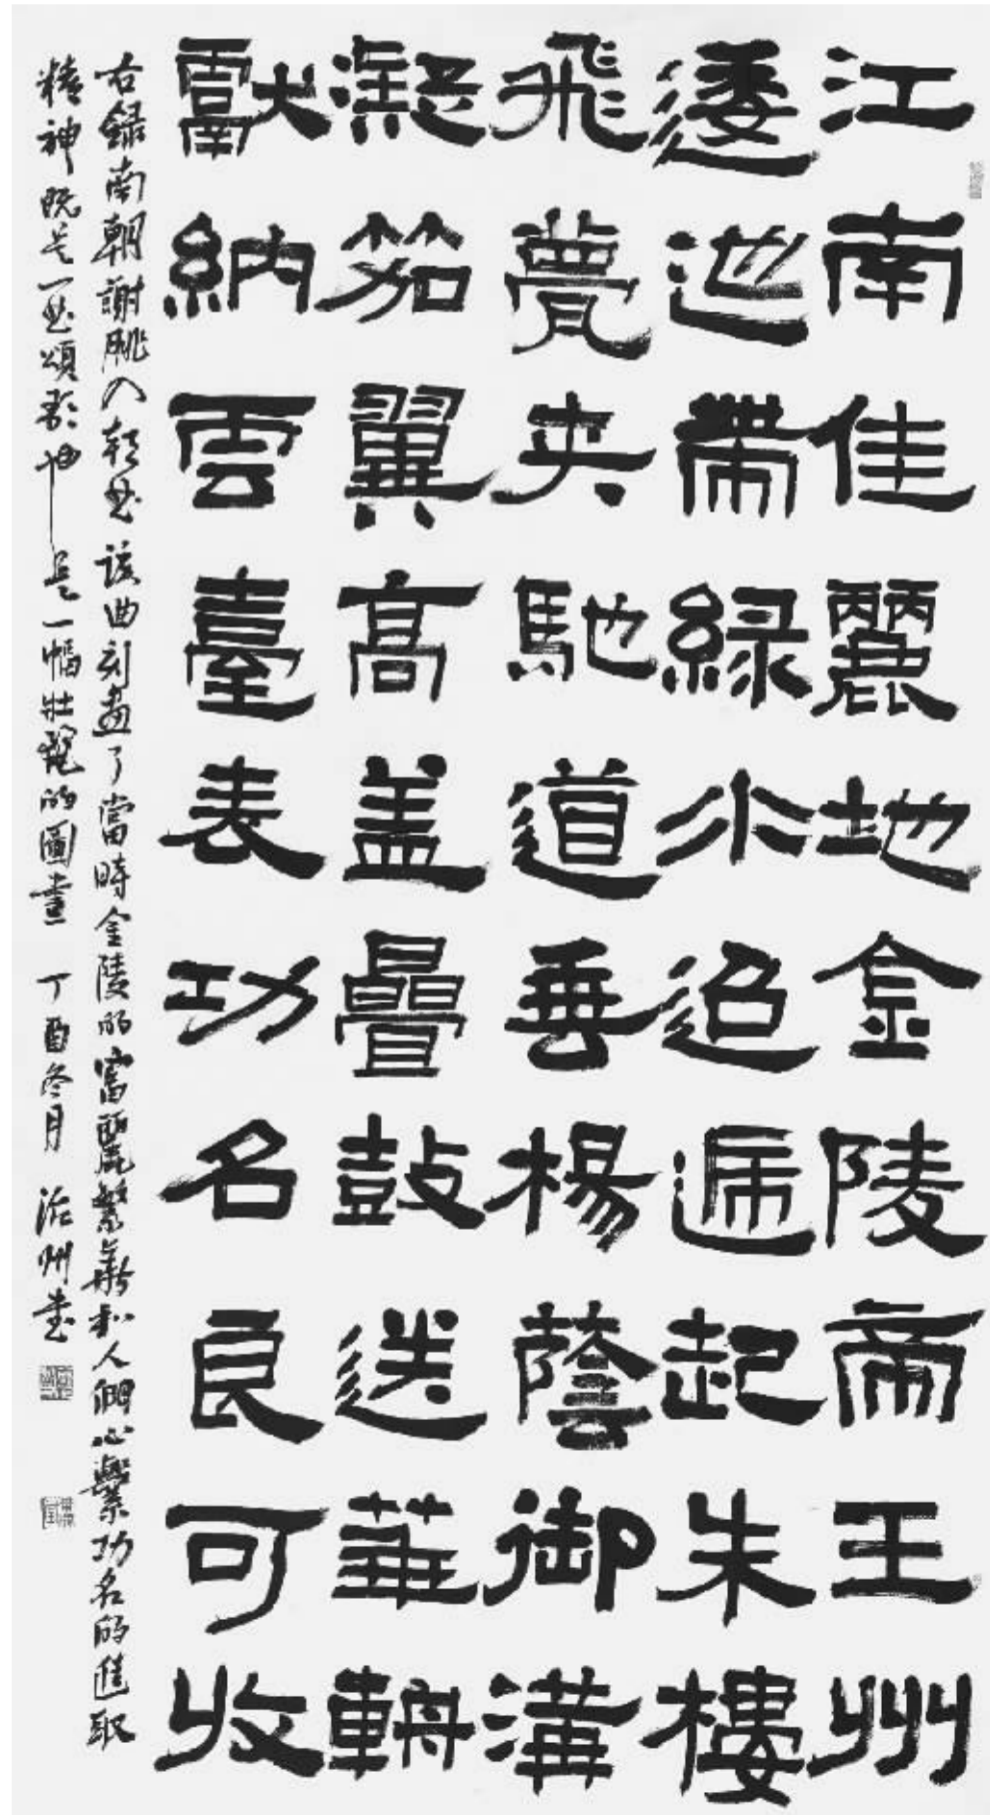 江南佳麗地金陵帝王州
逶迤帶綠水迢遞起朱樓
飛甍夾馳道垂楊蔭御溝
凝笳翼高盖疊鼓送華輈
獻納雲臺表功名良可收
右録南朝謝朓入朝曲該曲刻畫了當時金陵的富麗繁華和人們心繫功名的進取
精神既是一曲頌歌也是一幅壯麗的圖畫 丁酉冬月 治州書